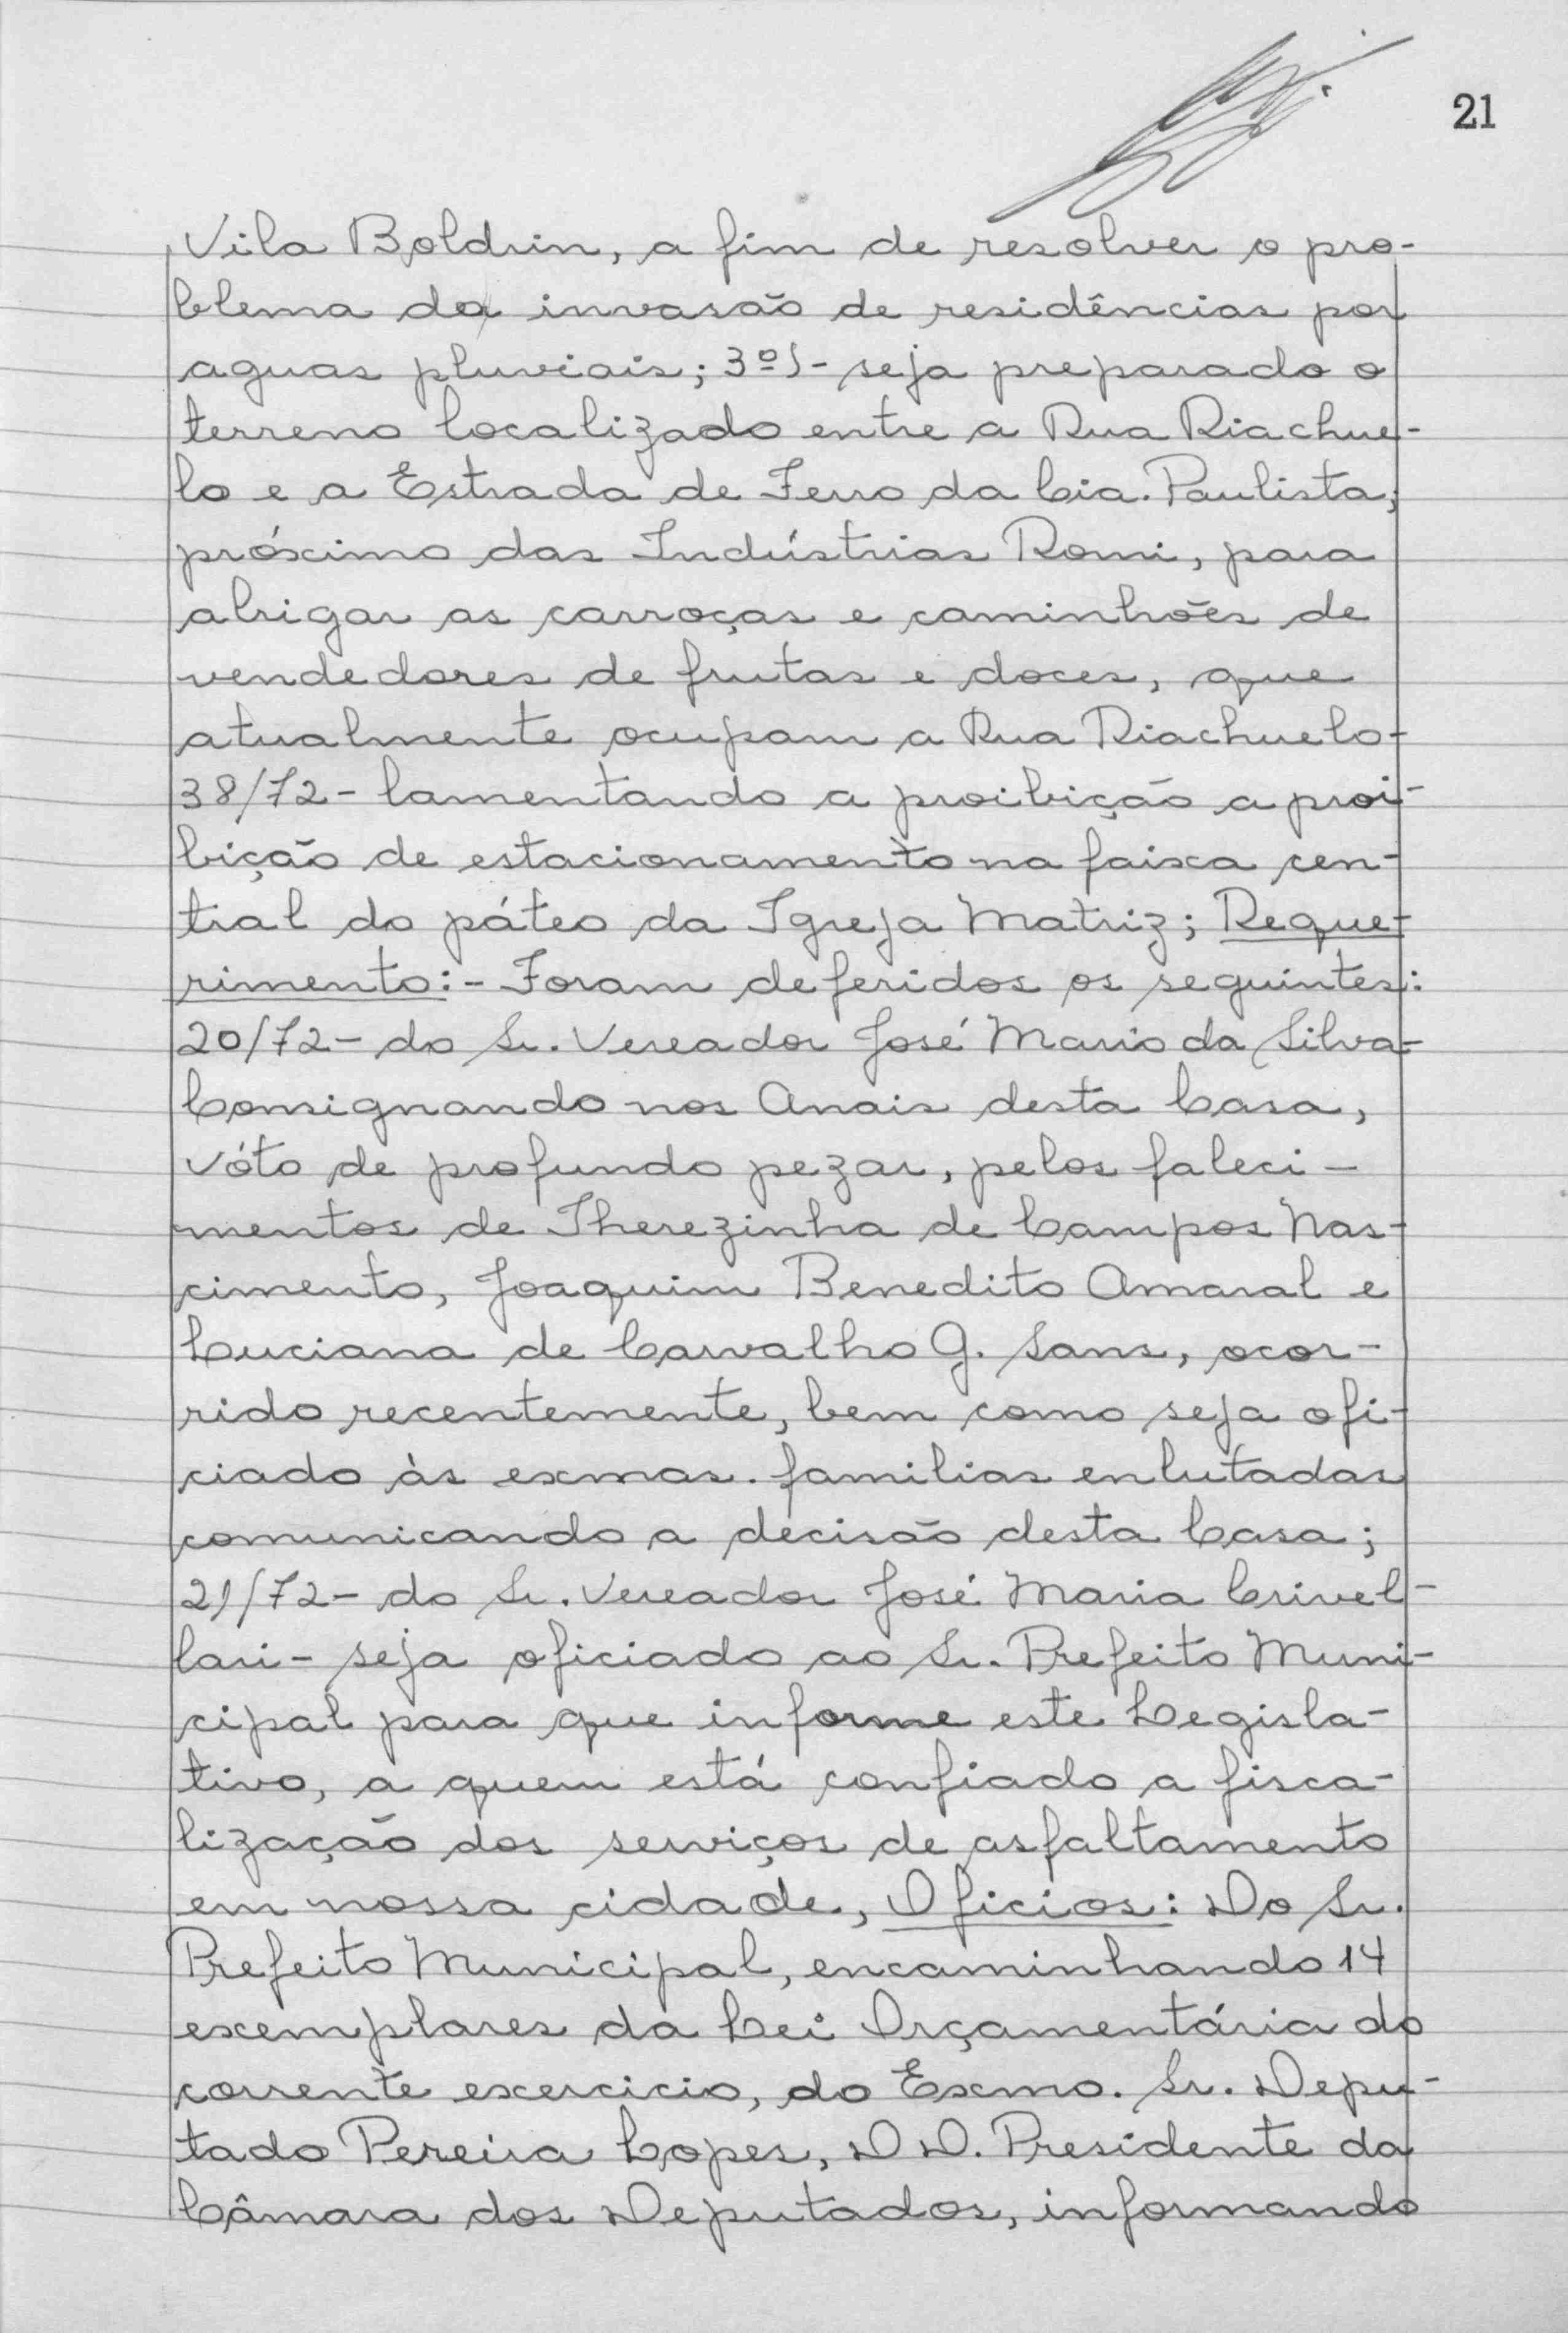 21
Vila Boldrin, a fim de resolver o pro-
blema da invasão de residências por
aguas pluviais; 3º)- seja preparado o
terreno localizado entre a Rua Riachue-
lo e a Estrada de Ferro da Cia. Paulista,
próximo das Indústrias Romi, para
abrigar as carroças e caminhões de
vendedores de frutas e doces, que
atualmente ocupam a Rua Riachuelo-
38/72- lamentando a proibição a proi-
bição de estacionamento na faixa cen-
tral do páteo da Igreja Matriz; Reque-
rimento:- Foram deferidos os seguintes:
20/72- do Sr. Vereador José Mario da Silva-
Consignando nos Anais desta Casa,
vóto de profundo pezar, pelos faleci-
mentos de Therezinha de Campos Nas-
cimento, Joaquim Benedito Amaral e
Luciana de Carvalho G. Sans, ocor-
rido recentemente, bem como seja ofi-
ciado às exmas. familias enlutadas
comunicando a decisão desta Casa;
21/72- do Sr. Vereador José Maria Crivel-
lari- seja oficiado ao Sr. Prefeito Muni-
cipal para que informe este Legisla-
tivo, a quem está confiado a fisca-
lização dos serviços de asfaltamento
em nossa cidade, Oficios: Do Sr.
Prefeito Municipal, encaminhando 14
exemplares da Lei Orçamentária do
corrente exercicio, do Exmo. Sr. Depu-
tado Pereira Lopes, DD. Presidente da
Câmara dos Deputados, informando